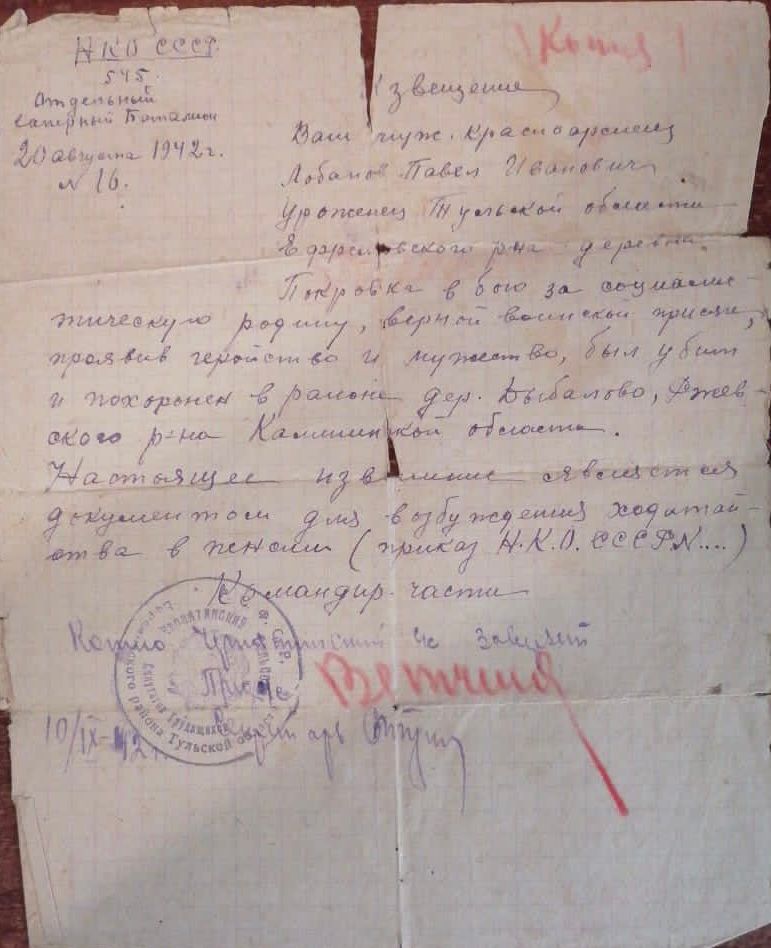 Н К О СССР.
545.
Отдельный
саперный Баталион
20 августа 1942 г.
N 16.
Копия
звещение
Ваш муж. красноармеец
Лобанов Павел Иванович
Уроженец Тульской области
Ефремовского р-на деревни
Покровка в бою за социалис-
тическую родину, верной воинской присяге,
проявив геройство и мужество, был убит
и похоронен в районе дер. Дыбалово, Ржев-
ского р-на Калининской области.
Настоящее изв ение является
документом для возбуждения ходатай-
ства в пенсии (приказ Н.К.О. СССР N....)
Командир части
Копию ис заверяет
10/IX-42 г.
Секретарь
района Тульской